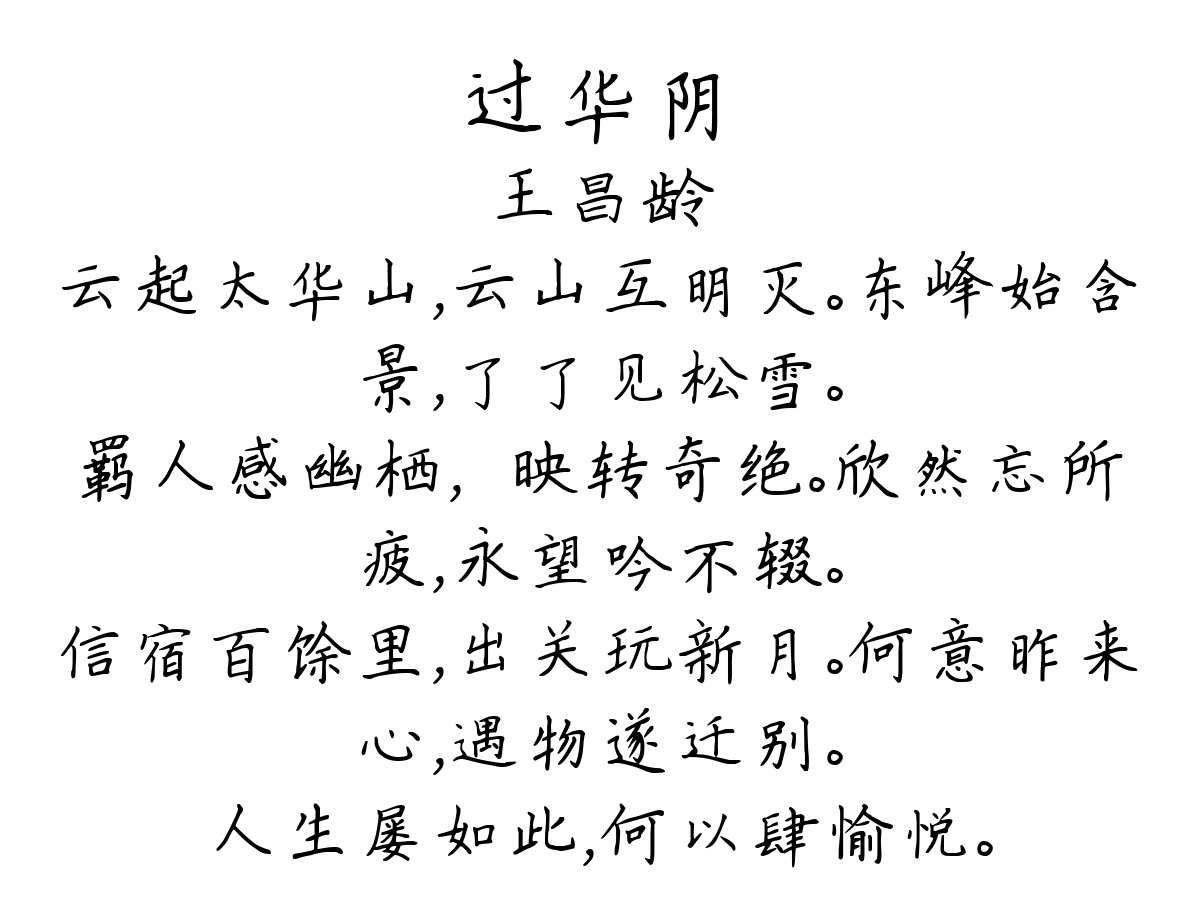 过华阴
王昌龄
云起太华山,云山互明灭。东峰始含
景,了了见松雪。
羁人感幽栖,映转奇绝。欣然忘所
疲,永望吟不辍。
信宿百馀里,出关玩新月。何意昨来
心,遇物遂迁别。
人生屡如此,何以肆愉悦。